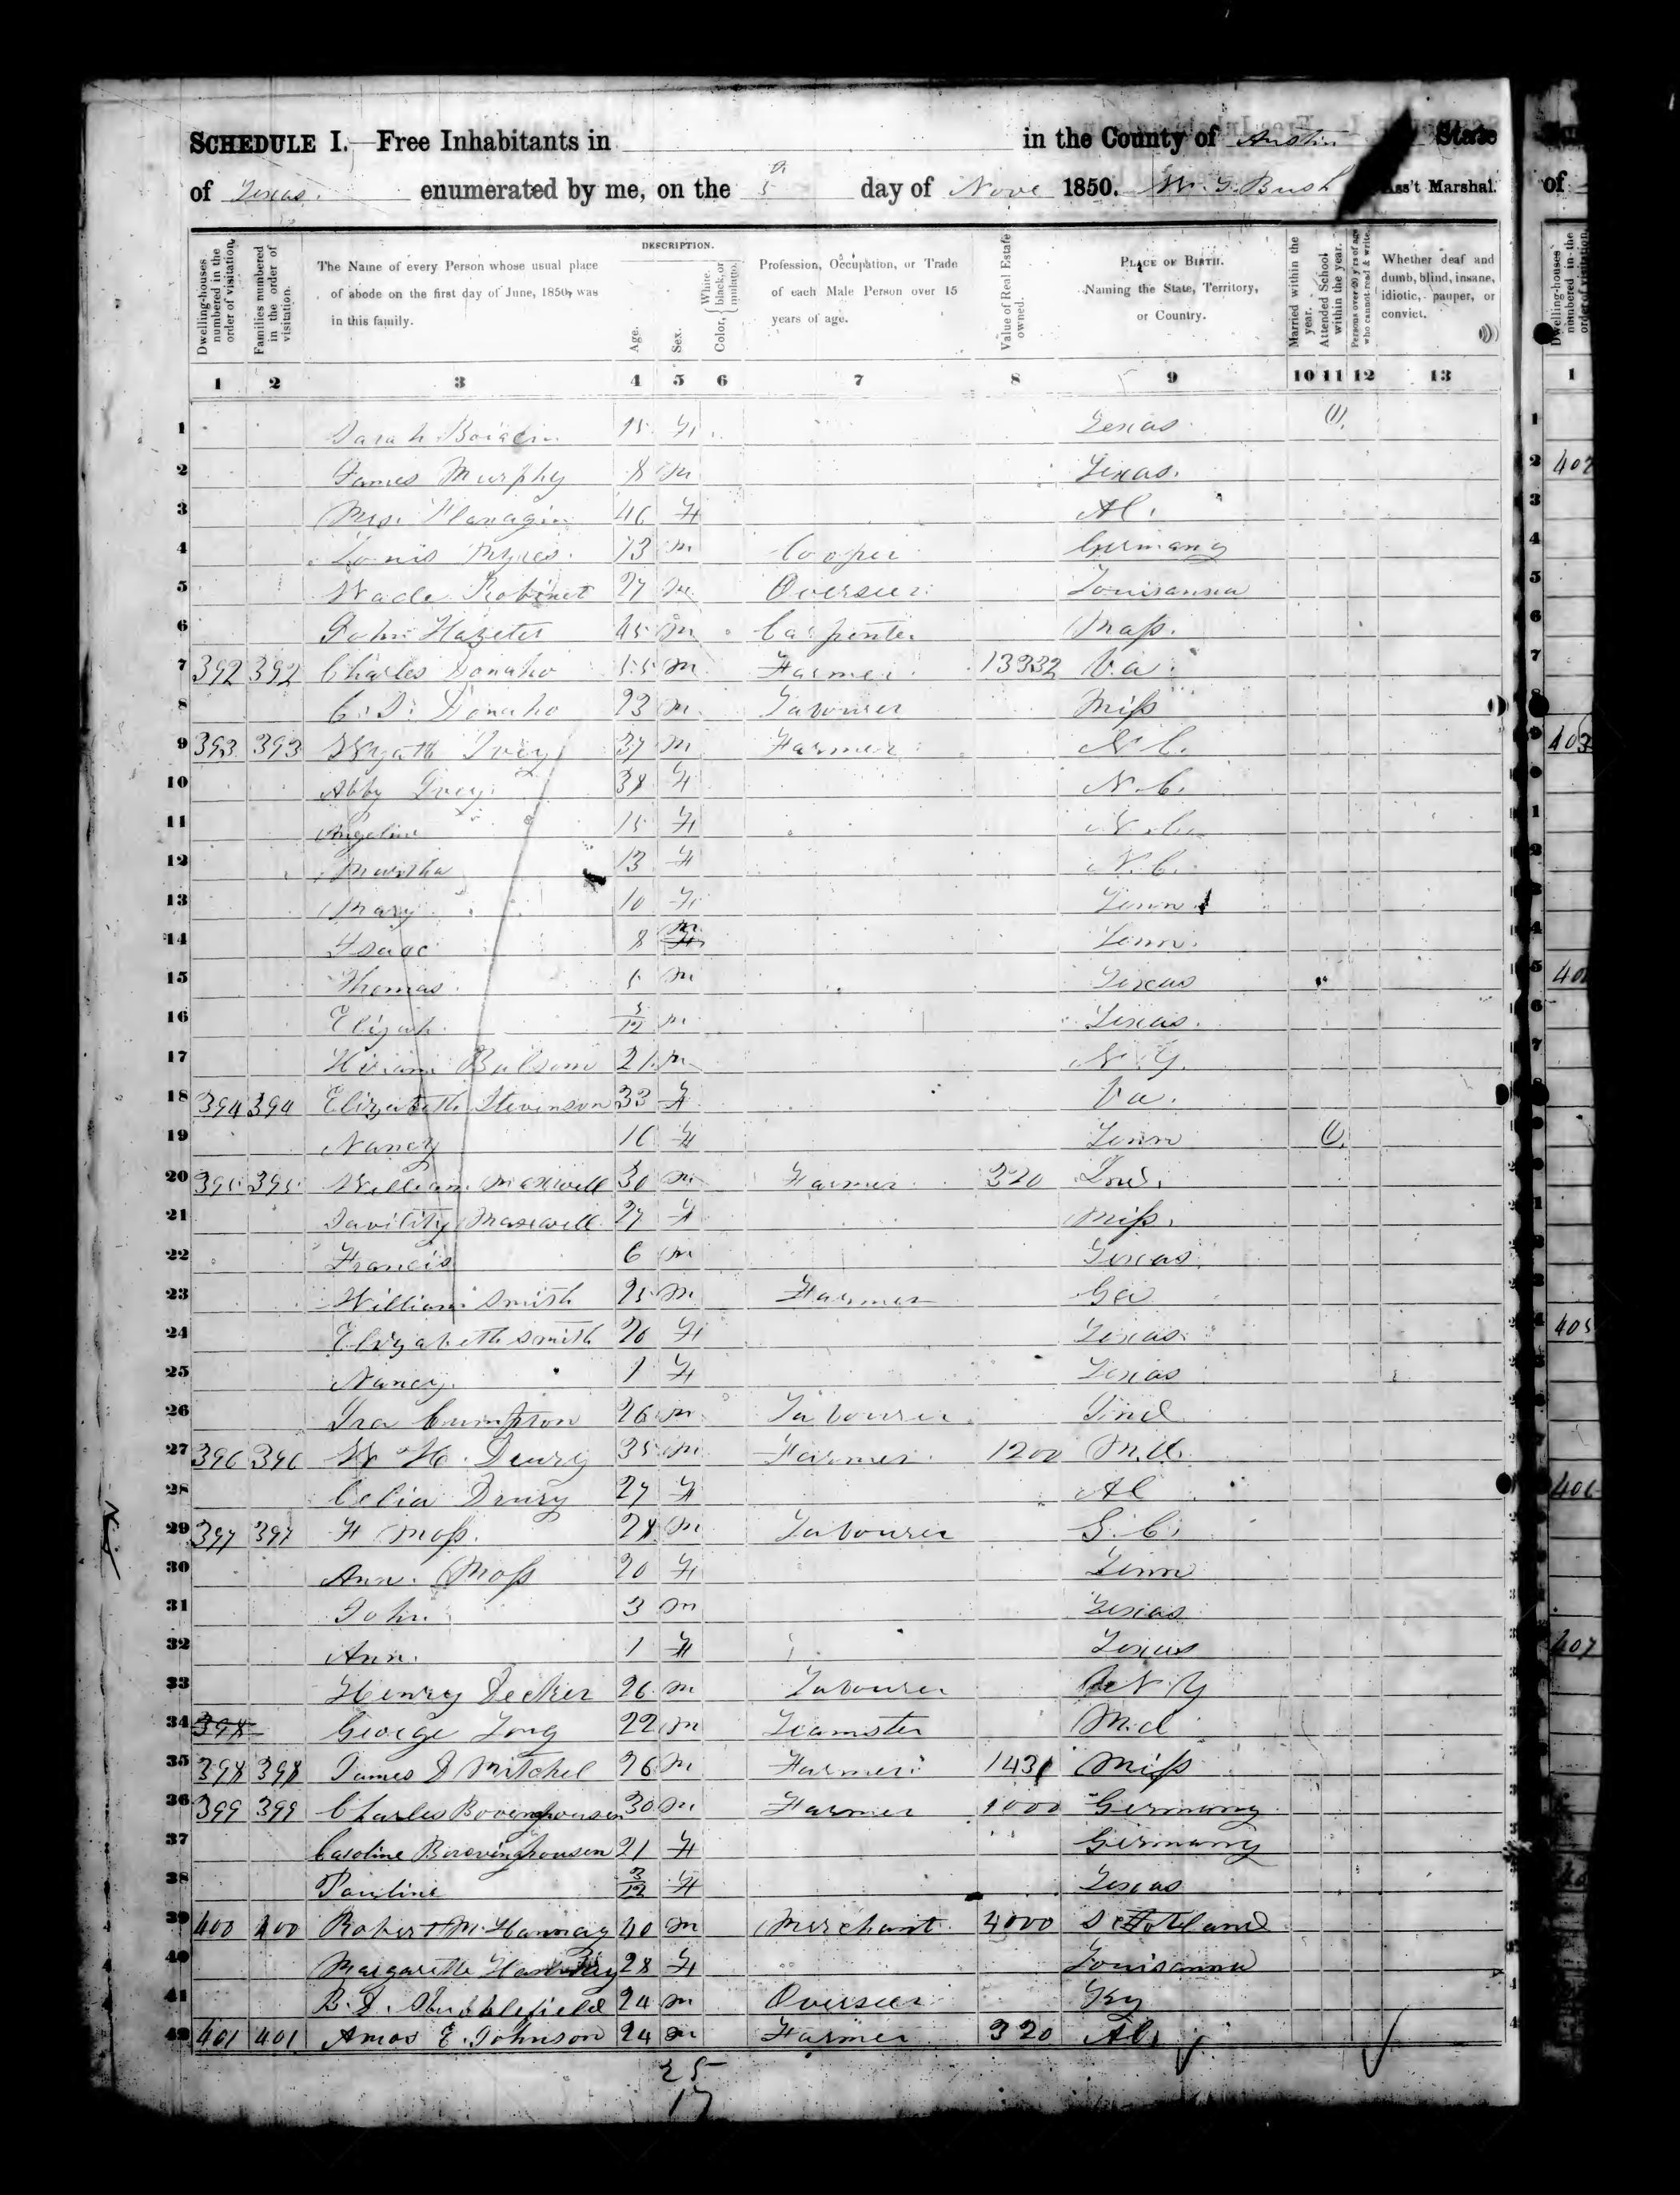 SCHEDULE I.—Free Inhabitants in in the County of Austin State
of Texas. enumerated by me, on the 5 day of Nove 1850. W. G. Bush Ass't Marshal.
Dwelling-houses numbered in the order of visitation.
Families numbered in the order of visitation.
The Name of every Person whose usual place of abode on the first day of June, 1850, was in this family.
DESCRIPTION.
Age.
Sex.
Color, { White, black, or mulatto.
Profession, Occupation, or Trade of each Male Person over 15 years of age.
Value of Real Estate owned.
PLACE OF BIRTH. Naming the State, Territory, or Country.
Married within the year.
Attended School within the year.
Persons over 20 y'rs of age who cannot read & write.
Whether deaf and dumb, blind, insane, idiotic, pauper, or convict.
1 2 3 4 5 6 7 8 9 10 11 12 13
1 Sarah 15 F Texas (1)
2 James Murphy 8 m Texas.
3 Mrs. Flanagin 46 F Al.
4 Louis Myres 73 m Cooper Germany
5 Wade Robinet 27 m Overseer Louisanna
6 John Hazeter 45 m Carpenter Mass.
7 392 392 Charles Donaho 55 m Farmer 13332 Va.
8 C. D. Donaho 23 m Labourer Miss
9 393 393 Wyatt Ivey 37 m Farmer N C.
10 Abby Ivey 38 F N. C.
11 Angeline 15 F N. C.
12 Martha 13 F N. C.
13 Mary 10 F Tenn
14 Isaac 8 m Tenn.
15 Thomas 5 m Texas
16 Elijah 5/12 m Texas.
17 Hiram Balsom 21 m N Y.
18 394 394 Elizabeth Stevenson 33 F Va.
19 Nancy 16 F Tenn (1)
20 395 395 William Maxwell 30 m Farmer 320 Ind.
21 Savility Maxwell 27 F Miss.
22 Francis 6 m Texas
23 William Smith 25 m Farmer Ga
24 Elizabeth Smith 20 F Texas
25 Nancy 1 F Texas
26 Ira Cumpton 26 m Labourer Ind
27 396 396 W H. Drury 35 m Farmer 1200 M.d.
28 Celia Drury 27 F Al
29 397 397 H Moss. 28 m Labourer S. C.
30 Ann. Moss 20 F Tenn
31 John. 3 m Texas
32 Ann. 1 F Texas
33 Henry Decker 26 m Labourer N. Y
34 398 George Long 22 m Teamster M.d
35 398 398 James D Mitchel 26 m Farmer 1431 Miss
36 399 399 Charles Bovenghousen 30 m Farmer 1000 Germany
37 Caroline Borovinghousen 21 F Germany
38 Pauline 3/12 F Texas
39 400 400 Robert M. Hannay 40 m Merchant 4000 Scotland
40 Margarette Hannay 28 F Louisanna
41 B. D. Stubblefield 24 m Overseer Ky
42 401 401 Amos E. Johnson 24 m Farmer 320 Al.
25
17